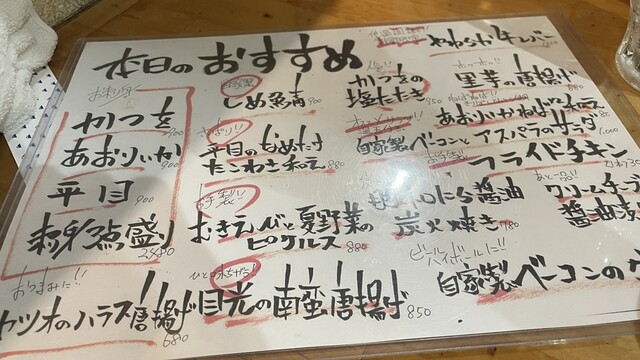 本日のおすすめ
お刺身
かつを 900
あおりいか 900
平目 900
お刺身3点盛り 2480
おつまみに!!
カツオのハラス唐揚げ 680
自家製
しめ鯖 900
さっぱり!!
平目のなめたけ
たこわさ和え 880
むきえびと夏野菜の
ピクルス 880
目光の南蛮唐揚げ 850
かつをの
塩たたき 950
自家製ベーコンと
アスパラのサラダ 1,000
にら醤油
炭火焼き 980
ビール ハイボールに!!
自家製ベーコンの
やわらかチャンバー
里芋の唐揚げ
あおりいかねばねば和え
フライドチキン
クリームチーズ
醤油漬